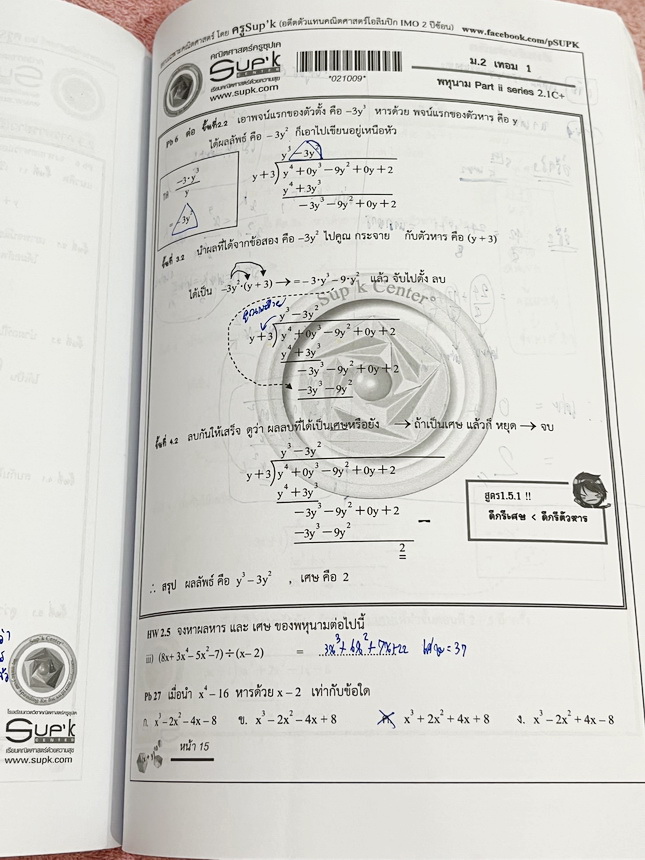 โดย ครูSup'k (อดีตตัวแทนคณิตศาสตร์โอลิมปิก IMO 2 ปีซ้อน) www.facebook.com/pSUPK
คณิตศาสตร์ครูซุปเค
Sup'k
CENTER
เรียนคณิตศาสตร์ด้วยความสุข
www.supk.com
*021009*
ม.2 เทอม 1
พหุนาม Part ii series 2.1C+
Pb 6 ต่อ ขั้นที่2.2 เอาพจน์แรกของตัวตั้ง คือ −3y³ หารด้วย พจน์แรกของตัวหาร คือ y
ได้ผลลัพธ์ คือ −3y² ก็เอาไปเขียนอยู่เหนือหัว
−3·y³
y
= −3y²
y³ −3y²
y+3) y⁴+0y³−9y²+0y+2
y⁴+3y³
−3y³−9y²+0y+2
ขั้นที่ 3.2 นำผลที่ได้จากข้อสอง คือ −3y² ไปคูณ กระจาย กับตัวหาร คือ (y+3)
ได้เป็น −3y²·(y+3) → =−3·y³−9·y² แล้ว จับไปตั้ง ลบ
Sup'k Center
y³−3y²
y+3) y⁴+0y³−9y²+0y+2
y⁴+3y³
−3y³−9y²+0y+2
−3y³−9y²
ขั้นที่ 4.2 ลบกันให้เสร็จ ดูว่า ผลลบที่ได้เป็นเศษหรือยัง → ถ้าเป็นเศษ แล้วก็ หยุด → จบ
y³−3y²
y+3) y⁴+0y³−9y²+0y+2
y⁴+3y³
−3y³−9y²+0y+2
−3y³−9y²
−
2
สูตร1.5.1 !!
ดีกรีเศษ < ดีกรีตัวหาร
∴ สรุป ผลลัพธ์ คือ y³−3y² , เศษ คือ 2
HW 2.5 จงหาผลหาร และ เศษ ของพหุนามต่อไปนี้
iii) (8x+3x⁴−5x²−7)÷(x−2) = 3x³+6x²+7x+22 เศษ = 37
Pb 27 เมื่อนำ x⁴−16 หารด้วย x−2 เท่ากับข้อใด
ก. x³−2x²−4x−8 ข. x³−2x²−4x+8 ค. x³+2x²+4x+8 ง. x³−2x²+4x−8
หน้า 15
Sup'k
CENTER
เรียนคณิตศาสตร์ด้วยความสุข
www.supk.com